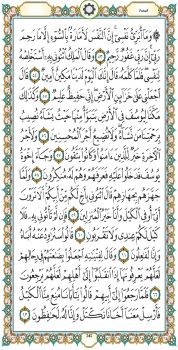 ۞ وَمَآ أُبَرِّئُ نَفْسِىٓ إِنَّ ٱلنَّفْسَ لَأَمَّارَةٌۢ بِٱلسُّوٓءِ إِلَّا مَا رَحِمَ
رَبِّىٓ إِنَّ رَبِّى غَفُورٌ رَّحِيمٌ ٥٣ وَقَالَ ٱلْمَلِكُ ٱئْتُونِى بِهِۦٓ أَسْتَخْلِصْهُ
لِنَفْسِى فَلَمَّا كَلَّمَهُۥ قَالَ إِنَّكَ ٱلْيَوْمَ لَدَيْنَا مَكِينٌ أَمِينٌ ٥٤ قَالَ
ٱجْعَلْنِى عَلَىٰ خَزَآئِنِ ٱلْأَرْضِ إِنِّى حَفِيظٌ عَلِيمٌ ٥٥ وَكَذَٰلِكَ
مَكَّنَّا لِيُوسُفَ فِى ٱلْأَرْضِ يَتَبَوَّأُ مِنْهَا حَيْثُ يَشَآءُ نُصِيبُ
بِرَحْمَتِنَا مَن نَّشَآءُ وَلَا نُضِيعُ أَجْرَ ٱلْمُحْسِنِينَ ٥٦ وَلَأَجْرُ
ٱلْأَخِرَةِ خَيْرٌ لِّلَّذِينَ ءَامَنُوا۟ وَكَانُوا۟ يَتَّقُونَ ٥٧ وَجَآءَ إِخْوَةُ
يُوسُفَ فَدَخَلُوا۟ عَلَيْهِ فَعَرَفَهُمْ وَهُمْ لَهُۥ مُنكِرُونَ ٥٨ وَلَمَّا
جَهَّزَهُم بِجَهَازِهِمْ قَالَ ٱئْتُونِى بِأَخٍ لَّكُم مِّنْ أَبِيكُمْ أَلَا تَرَوْنَ
أَنِّىٓ أُوفِى ٱلْكَيْلَ وَأَنَا۠ خَيْرُ ٱلْمُنزِلِينَ ٥٩ فَإِن لَّمْ تَأْتُونِى بِهِۦ فَلَا
كَيْلَ لَكُمْ عِندِى وَلَا تَقْرَبُونِ ٦٠ قَالُوا۟ سَنُرَٰوِدُ عَنْهُ أَبَاهُ
وَإِنَّا لَفَٰعِلُونَ ٦١ وَقَالَ لِفِتْيَٰنِهِ ٱجْعَلُوا۟ بِضَٰعَتَهُمْ فِى رِحَالِهِمْ
لَعَلَّهُمْ يَعْرِفُونَهَآ إِذَا ٱنقَلَبُوٓا۟ إِلَىٰٓ أَهْلِهِمْ لَعَلَّهُمْ يَرْجِعُونَ
٦٢ فَلَمَّا رَجَعُوٓا۟ إِلَىٰٓ أَبِيهِمْ قَالُوا۟ يَٰٓأَبَانَا مُنِعَ مِنَّا ٱلْكَيْلُ
فَأَرْسِلْ مَعَنَآ أَخَانَا نَكْتَلْ وَإِنَّا لَهُۥ لَحَٰفِظُونَ ٦٣